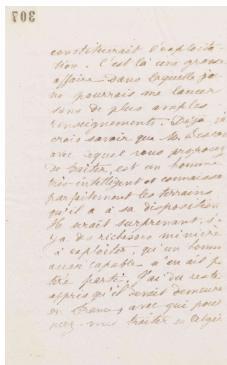 307
constituerait l'exploita-
tion. C'est là une grosse
affaire dans laquelle je
ne pourrais me lancer
sans de plus amples
renseignements. Déjà, je
crois savoir que Mr.
avec lequel vous proposez
de traiter, est un homme
très intelligent et connaissant
parfaitement les terrains
qu'il a à sa disposition
Il serait surprenant, s'il
y a des richesses minières
à exploiter, qu'un homme
aussi capable n'en ait pu
tirer parti. J'ai du reste
appris qu'il devait demeurer
en France, avec qui pour
nez-vous traiter en Algérie